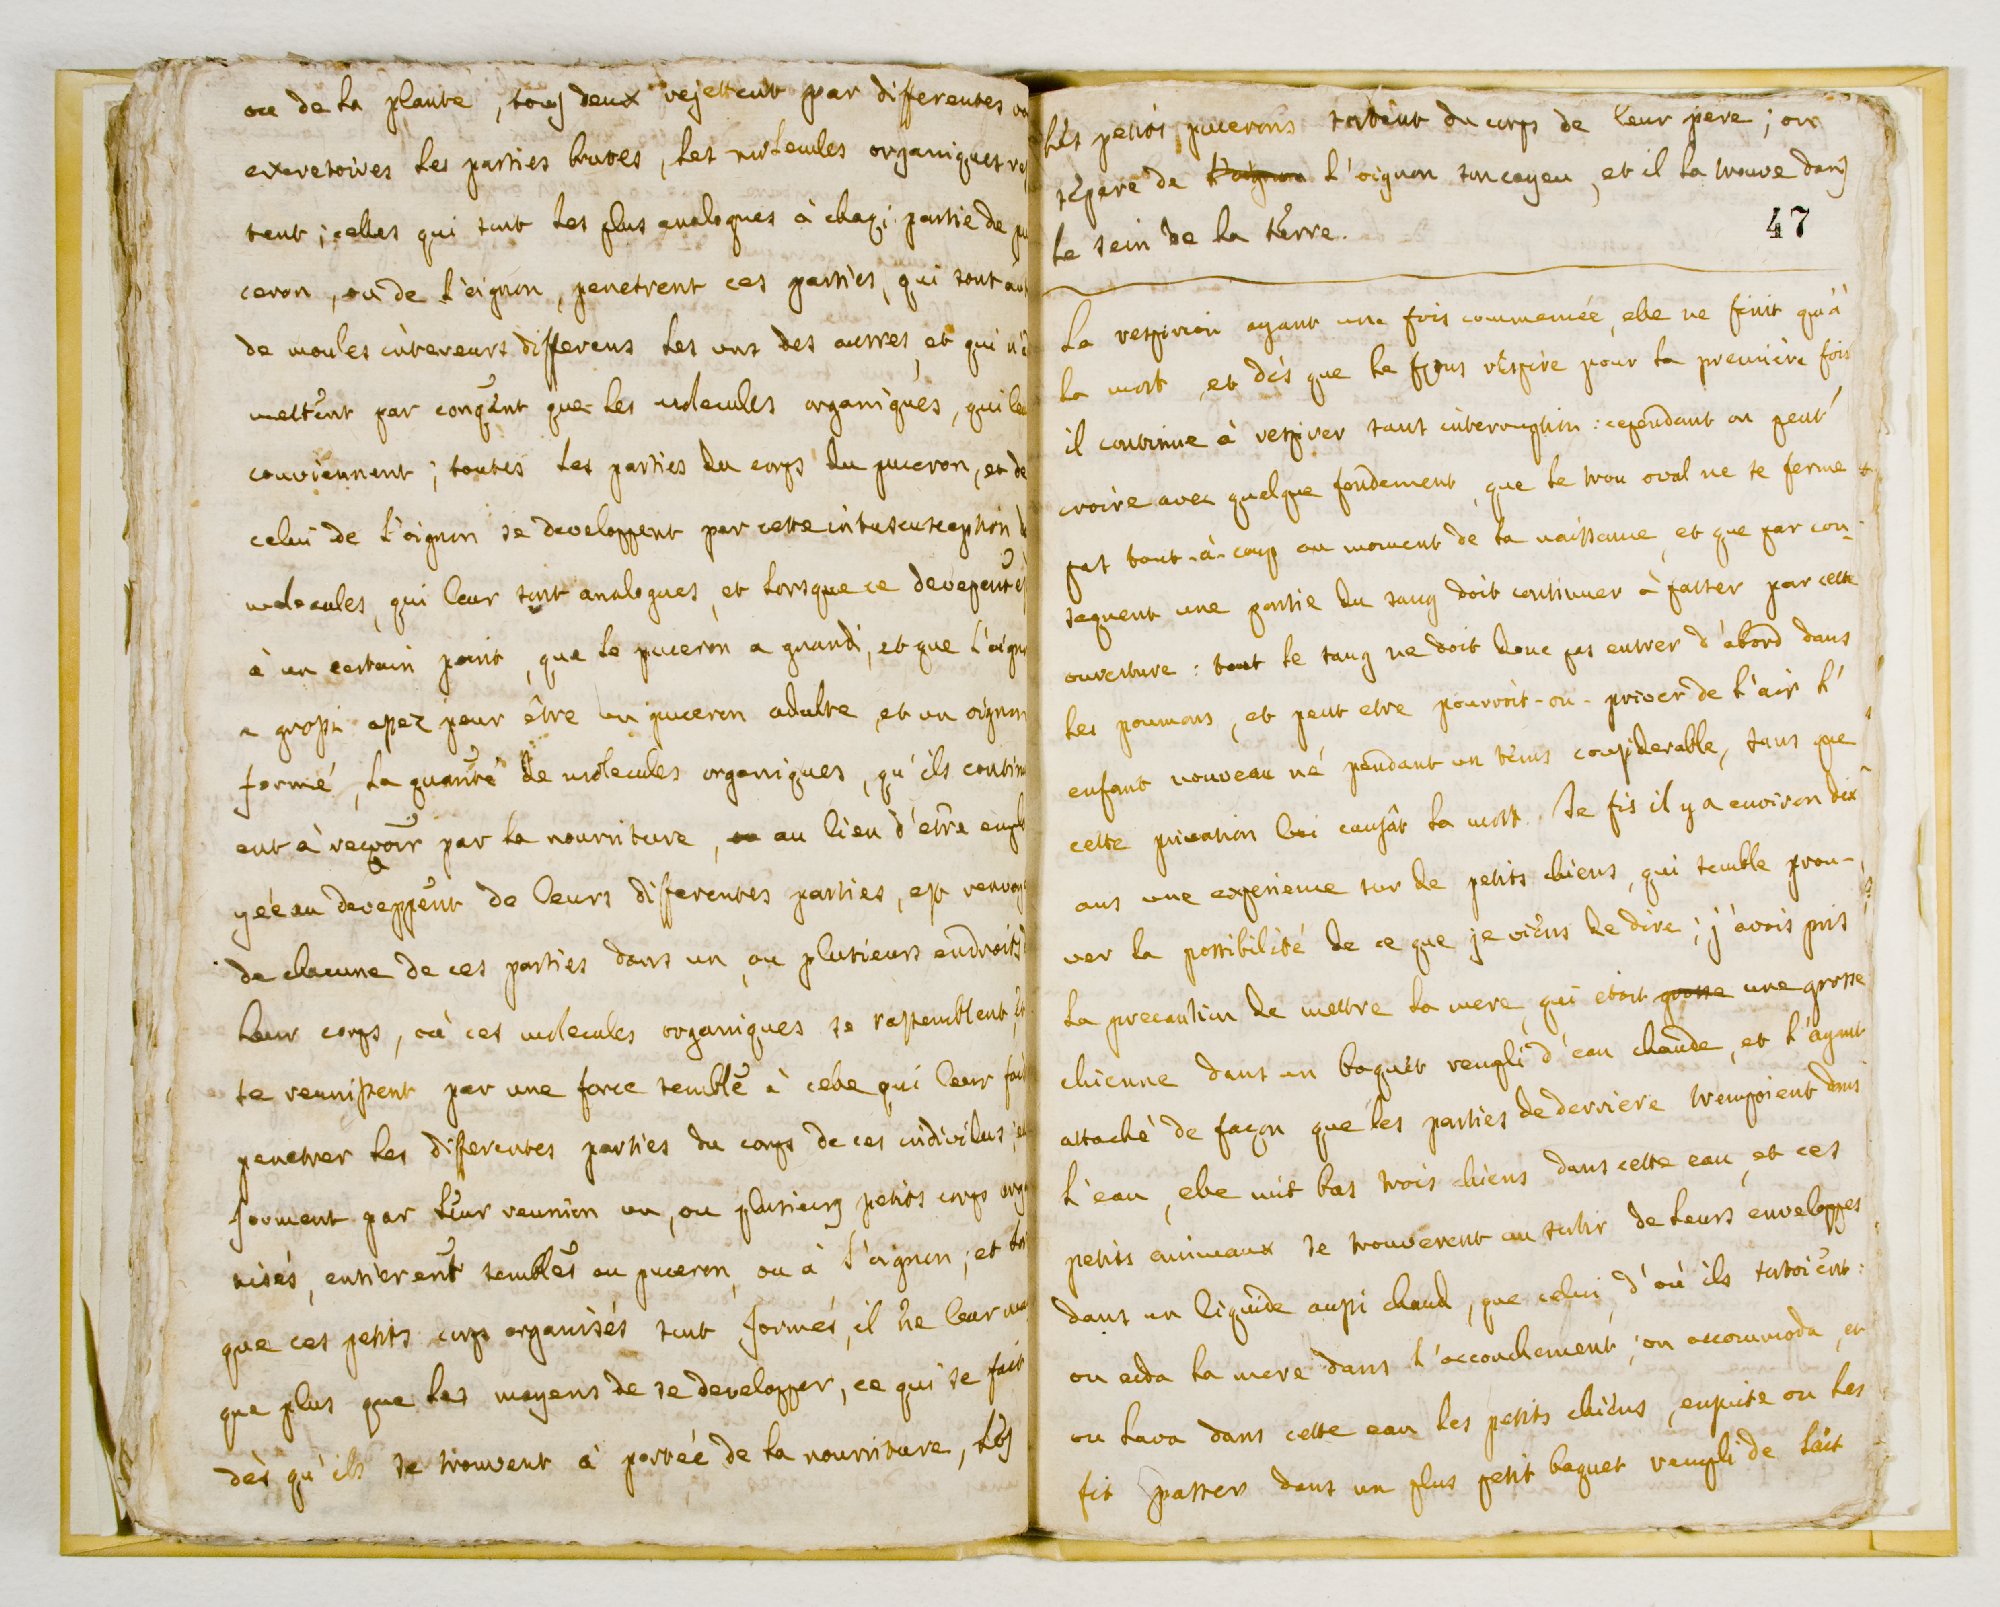 ou de la plante, tous deux rejettent par differentes
excretoires les parties brutes, les molecules organiques
tent; celles qui sont les plus analogues à chaq; partie de pu
ceron, ou de l'oignon, penetrent ces parties, qui sont
de moules intereurs differens les uns des autres, et qui
mettent par conqent que les molecules organiques, qui
conviennent; toutes les parties du corps du puceron, et de
celui de l'oignon se developpent par cette intussusception
molecules, qui leur sont analogues, et lorsque ce devepent
à un certain point, que le puceron a grandi, et que l'oign
a grossi assez pour être un puceron adulte, et un oignon
formé, la quanté de molecules organiques, qu'ils contin
ent à recevoir par la nourriture, au lieu d'etre empl
yée au developpent de leurs differentes parties, est renvoy
de chacune de ces parties dans un, ou plusieurs endroits
leur corps, où ces molecules organiques se rassemblent,
se reunissent par une force semblê à celle qui leur
penetrer les differentes parties du corps de ces individus;
forment par leur reunion un, ou plusieurs petits corps org
nisés, entierent sembles au puceron, ou à l'oignon; et
que ces petits corps organisés sont formés, il ne leur
que plus que les moyens de se developper, ce qui se fait
dès qu'ils se trouvent à portée de la nourriture,
les petits pucerons sortent du corps de leur pere; on
sépare de l'oignon l'oignon son cayeu, et il la trouve dans
le sein de la terre.
47
La respirion ayant une fois commencée, elle ne finit qu'à
la mort, et dès que le fœtus respire pour la première fois
il continue à respirer sans interruption: cependant on peut
croire avec quelque fondement, que le trou oval ne se ferme
pas tout-à-coup au moment de la naissance, et que par con-
sequent une partie du sang doit continuer à passer par cette
ouverture: tout le sang ne doit donc pas entrer d'abord dans
les poumons, et peut etre pourroit-on priver de l'air l'
enfant nouveau né pendant un tems considerable, sans que
cette privation lui causât la mort. Je fis il y a environ dix
ans une experience sur de petits chiens, qui semble prou-
ver la possibilité de ce que je viens de dire; j'avois pris
la precaution de mettre la mere, qui etoit grosse une grosse
chienne dans un baquet rempli d'eau chaude, et l'ayant
attaché de façon que les parties de derriere trempoient dans
l'eau, elle mit bas trois chiens dans cette eau, et ces
petits animaux se trouverent au sortir de leurs enveloppes
dans un liquide aussi chaud, que celui d'où ils sortoient:
on aida la mere dans l'accouchement; on accommoda, et
on lava dans cette eau les petits chiens, ensuite on les
fit passer dans un plus petit baquet rempli de lait